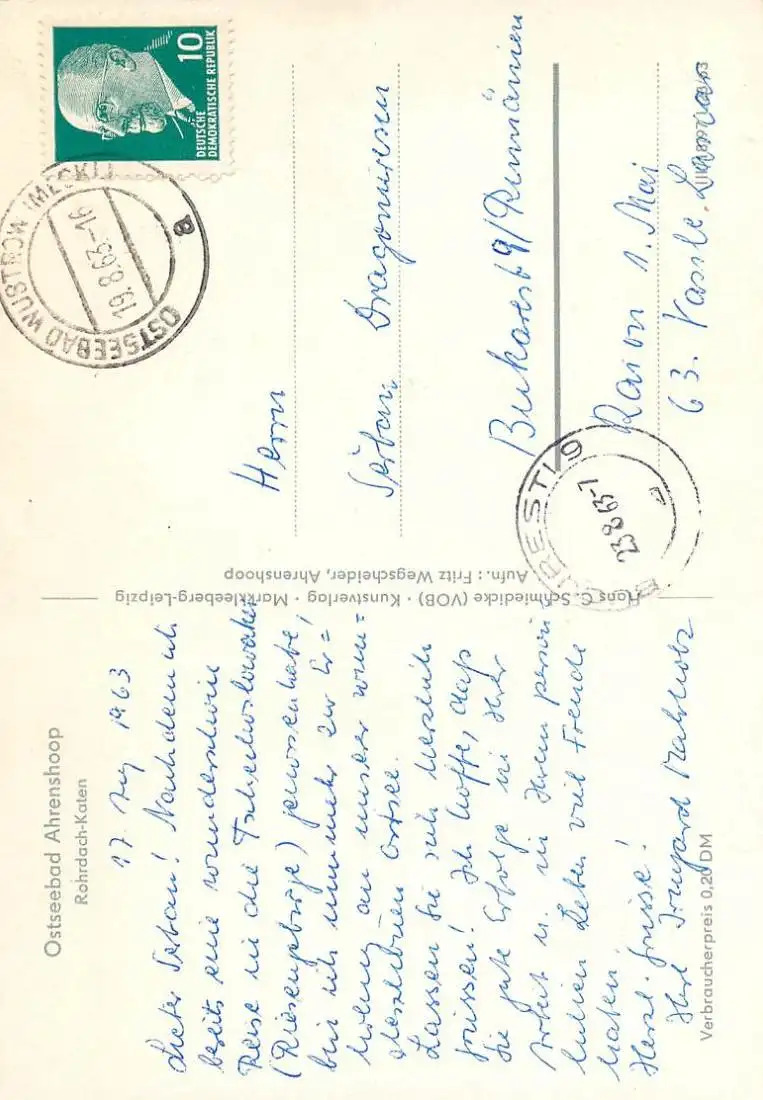 Ostseebad Ahrenshoop
Rohrdach-Katen
17. Aug 1963
Lieber Serban! Nachdem ich
bereits eine wunderschöne
Reise in die Tschechoslowakei
(Riesengebirge) genossen habe,
bin ich nunmehr zur Er=
holung an unserer wun=
derschönen Ostsee.
Lassen Sie sich herzlich
grüssen! Ich hoffe, dass
Sie gute Erfolge in Ihrer
Arbeit u. in Ihrem persön
lichen Leben viel Freude
haben.
Herzl. Grüsse!
Ihre Irmgard
Verbraucherpreis 0,20 DM
Hans C. Schmiedicke (VOB) · Kunstverlag · Markkleeberg-Leipzig
Aufn.: Fritz Wegscheider, Ahrenshoop
10
DEUTSCHE
DEMOKRATISCHE REPUBLIK
OSTSEEBAD WUSTROW (MECKL)
19.8.63-16
a
Herrn
Serban Dragomirescu
Bukarest 9/Rumänien
Raion 1. Mai
63. Vasile
BUCUREȘTI 9
23.8.63-7